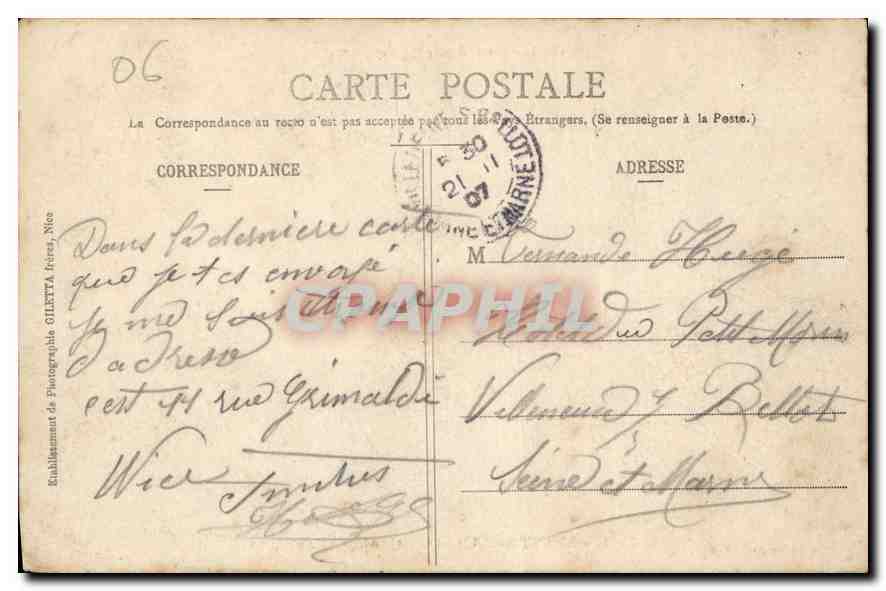 06
CARTE POSTALE
La Correspondance au recto n'est pas acceptée par tous les Pays Étrangers. (Se renseigner à la Poste.)
CORRESPONDANCE
ADRESSE
30
21 11
07
Dans la derniere carte
que je t es envoyé
je me suis
d adresse
c est 11 rue Grimaldi
Nice
M Fernande Hugé
Hotel du Petit Morin
Villeneuve s/ Bellot
Seine et Marne
Etablissement de Photographie GILETTA frères, Nice
CPAPHIL